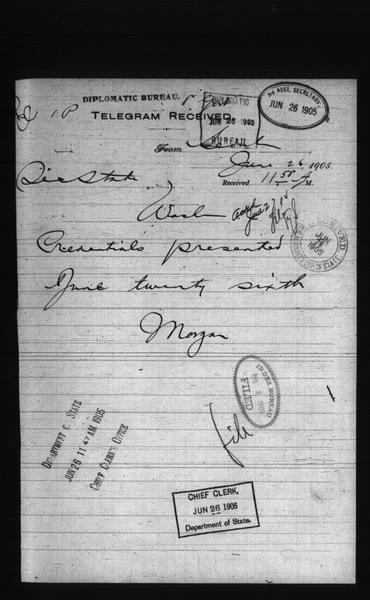 DIPLOMATIC BUREAU.
TELEGRAM RECEIVED.
DIPLOMATIC
JUN 26 1905
BUREAU
3rd ASST. SECRETARY
JUN 26 1905
From
June 26 1905.
Received 11 50 A M.
Sec State
Wash
Credentials presented
June twenty sixth
Morgan
RECEIVED
JUN
1905
INDEX BUREAU
1905
FILED
file
DEPARTMENT OF STATE
JUN 26 11 47 AM 1905
CHIEF CLERK'S OFFICE
CHIEF CLERK,
JUN 26 1905
Department of State.